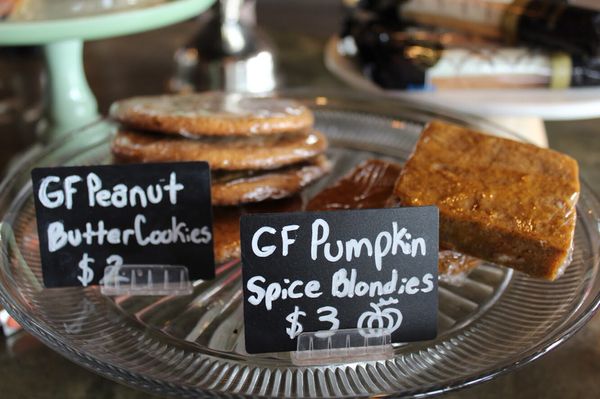 GF Peanut
Butter Cookies
$2
GF Pumpkin
Spice Blondies
$3